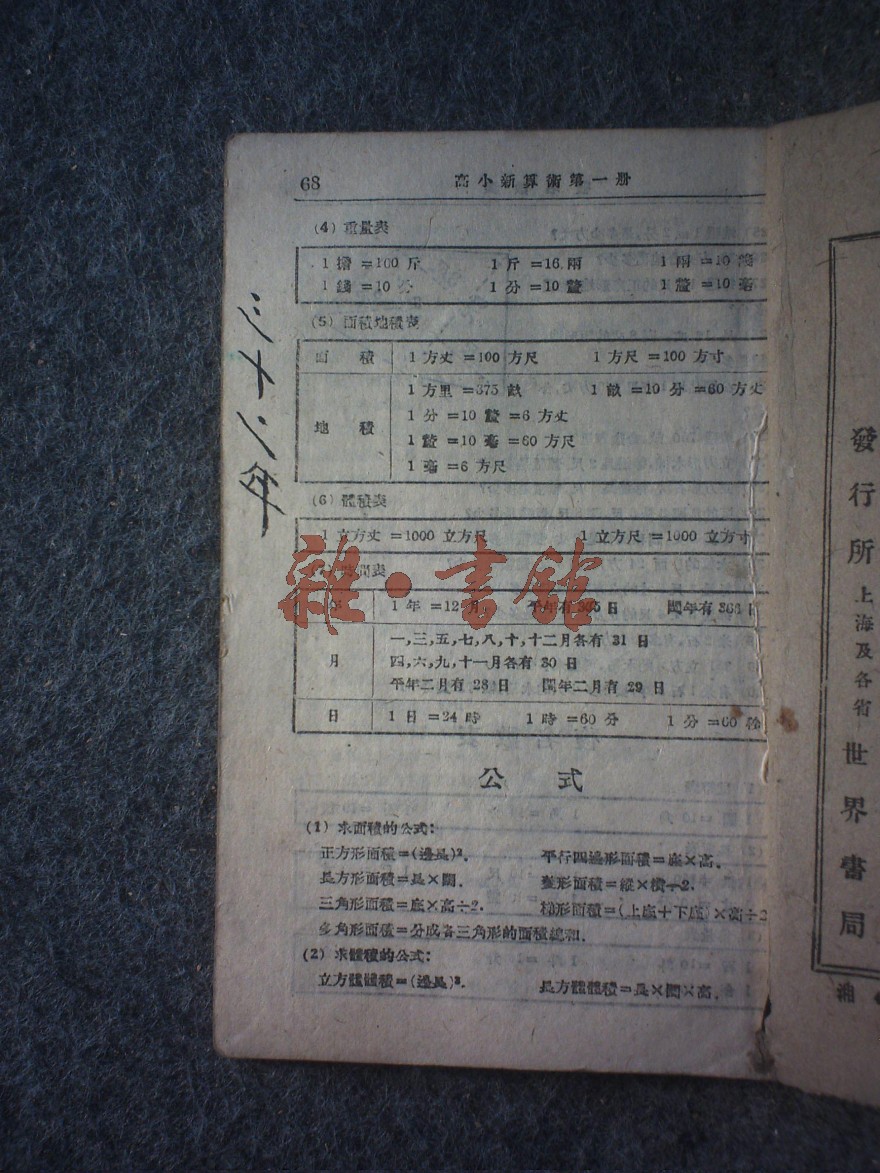 68
高小新算術第一册
(4) 重量表
1 擔 =100 斤 1 斤 =16 兩 1 兩 =10 錢
1 錢 =10 分 1 分 =10 釐 1 釐 =10 毫
(5) 面積地積表
面積 1 方丈 =100 方尺 1 方尺 =100 方寸
地積 1 方里 =375 畝 1 畝 =10 分 =60 方丈
1 分 =10 釐 =6 方丈
1 釐 =10 毫 =60 方尺
1 毫 =6 方尺
(6) 體積表
1 立方丈 =1000 立方尺 1 立方尺 =1000 立方寸
時間表
年 1 年 =12 月 平年有 365 日 閏年有 366 日
月 一,三,五,七,八,十,十二月各有 31 日
四,六,九,十一月各有 30 日
平年二月有 28 日 閏年二月有 29 日
日 1 日 =24 時 1 時 =60 分 1 分 =60 秒
公式
(1) 求面積的公式:
正方形面積=(邊長)². 平行四邊形面積=底×高.
長方形面積=長×闊. 菱形面積=縱×橫÷2.
三角形面積=底×高÷2. 梯形面積=(上底+下底)×高÷2
多角形面積=分成各三角形的面積總和.
(2) 求體積的公式:
立方體體積=(邊長)³. 長方體體積=長×闊×高.
雜·書館
發行所 上海及各省 世界書局